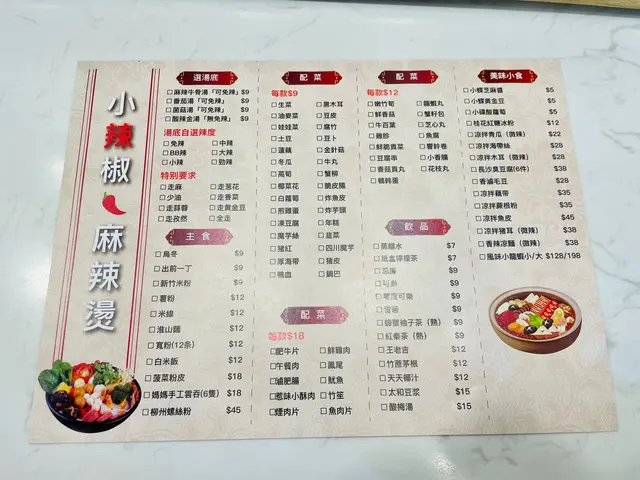 小辣椒
麻辣燙
選湯底
麻辣牛骨湯「可免辣」 $9
番茄湯「可免辣」 $9
菌菇湯「可免辣」 $9
酸辣金湯「無免辣」 $9
湯底自選辣度
免辣 中辣
BB辣 大辣
小辣 勁辣
特別要求
走麻 走蔥花
少油 走香菜
走蒜蓉 走黃金豆
走孜然 全走
主食
烏冬 $9
出前一丁 $9
新竹米粉 $9
薯粉 $12
米線 $12
淮山麵 $12
寬粉(12条) $12
白米飯 $12
菠菜粉皮 $18
媽媽手工雲吞(6隻) $18
柳州螺絲粉 $45
配菜
每款$9
生菜 黑木耳
油麥菜 豆皮
娃娃菜 腐竹
土豆 豆卜
蓮藕 金針菇
冬瓜 牛丸
萵筍 蟹柳
椰菜花 脆皮腸
白蘿蔔 炸魚皮
煎雞蛋 炸芋頭
凍豆腐 年糕
魔芋絲 韭菜
豬紅 四川魔芋
厚海帶 豬皮
鴨血 鍋巴
配菜
每款$18
肥牛片 鮮雞肉
午餐肉 鳳尾
滷肥腸 魷魚
惹味小酥肉 竹笙
煙肉片 魚肉片
配菜
每款$12
嫩竹筍 龍蝦丸
鮮香菇 蟹籽包
牛百葉 芝心丸
雞胗 魚腐
鮮脆貢菜 響鈴卷
豆腐串 小香腸
香菇貢丸 花枝丸
鵪鶉蛋
飲品
蒸餾水 $7
紙盒檸檬茶 $7
忌廉 $9
$9
零度可樂 $9
雪碧 $9
蜂蜜柚子茶（熱） $9
紅棗茶（熱） $9
王老吉 $9
竹蔗茅根 $12
天天椰汁 $12
太和豆漿 $15
酸梅湯 $15
美味小食
小蝶芝麻醬 $5
小蝶黃金豆 $5
小碟酸蘿蔔 $5
桂花紅糖冰粉 $12
涼拌青瓜（微辣） $22
涼拌海帶絲 $28
涼拌木耳（微辣） $28
長沙臭豆腐(6件) $38
香滷毛豆 $28
涼拌藕帶 $35
涼拌蕨根粉 $35
涼拌魚皮 $45
涼拌豬耳（微辣） $38
香辣涼麵（微辣） $38
風味小龍蝦小/大 $128/198